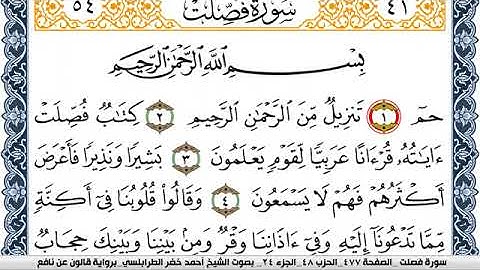 ٤١ سُورَةُ فُصِّلَتْ ٥٤
بِسْمِ اللَّهِ الرَّحْمَٰنِ الرَّحِيمِ
حمٓ ١ تَنزِيلٌ مِّنَ اَ۬لرَّحْمَٰنِ اِ۬لرَّحِيمِ ٢ كِتَٰبٌ فُصِّلَتْ
ءَايَٰتُهُۥ قُرْءَانًا عَرَبِيًّا لِّقَوْمٍ يَعْلَمُونَ ٣ بَشِيرًا وَنَذِيرًا فَأَعْرَضَ
أَكْثَرُهُمْ فَهُمْ لَا يَسْمَعُونَ ٤ وَقَالُوا۟ قُلُوبُنَا فِىٓ أَكِنَّةٍ
مِّمَّا تَدْعُونَآ إِلَيْهِ وَفِىٓ ءَاذَانِنَا وَقْرٌ وَمِنۢ بَيْنِنَا وَبَيْنِكَ حِجَابٌ
سورة فصلت _ الصفحة ٤٧٧_ الحزب ٤٨_ الجزء ٢٤ _ بصوت الشيخ أحمد خضر الطرابلسي _ برواية قالون عن نافع